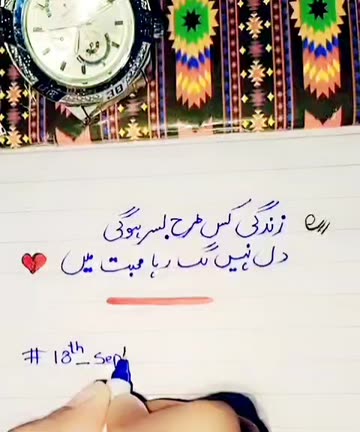 زندگی کس طرح بسر ہوگی
دل نہیں لگ رہا محبت میں
# 18th_Sep